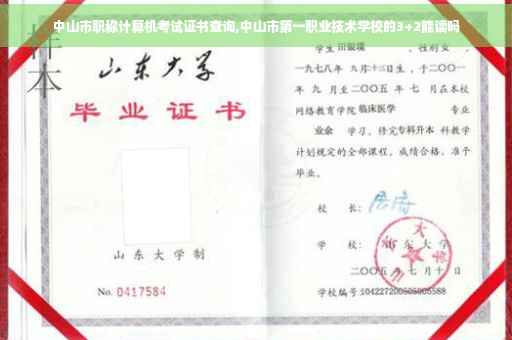 中山市职称计算机考试证书查询,中山市第一职业技术学校的3+2能读吗
样本
山东大学
毕业证书
山东大学制
No. 0417584
学生 田银瑞 ,性别 女 ,
一九七八年 九月十二日生,于二〇〇一
年 九 月至二〇〇五 年 七 月在本校
网络教育学院 临床医学 专业
业余 学习,修完专科升本 科教学
计划规定的全部课程,成绩合格,准予
毕业。
校 长:
学 校:山东大学
二〇〇五年七月十日
学校编号:104227200505005588